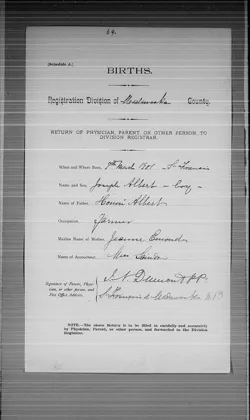 (Schedule A.)
BIRTHS.
Registration Division of Madawaska County.
RETURN OF PHYSICIAN, PARENT, OR OTHER PERSON, TO
DIVISION REGISTRAR.
When and Where Born, 9th March 1901 St Francois
Name and Sex, Joseph Albert - boy -
Name of Father, Honoré Albert
Occupation, Farmer
Maiden Name of Mother, Jeanne Emond
Name of Accoucheur, Mrs
Signature of Parent, Physician, or other person, and Post Office Address.
St François de Madawaska N.B.
NOTE.—The above Return is to be filled in carefully and accurately
by Physician, Parent, or other person, and forwarded to the Division
Registrar.